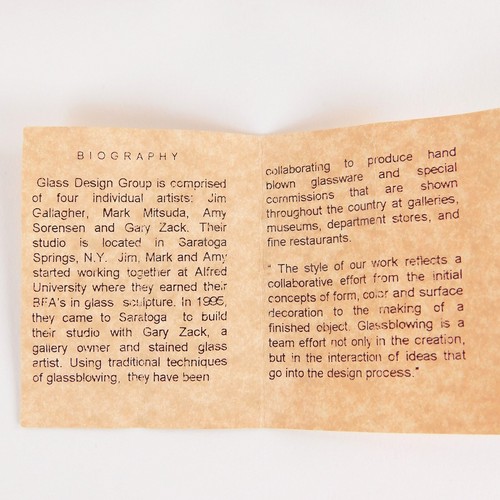 BIOGRAPHY
Glass Design Group is comprised
of four individual artists: Jim
Gallagher, Mark Mitsuda, Amy
Sorensen and Gary Zack. Their
studio is located in Saratoga
Springs, N.Y. Jim, Mark and Amy
started working together at Alfred
University where they earned their
BFA's in glass sculpture. In 1995,
they came to Saratoga to build
their studio with Gary Zack, a
gallery owner and stained glass
artist. Using traditional techniques
of glassblowing, they have been
collaborating to produce hand
blown glassware and special
commissions that are shown
throughout the country at galleries,
museums, department stores, and
fine restaurants.
" The style of our work reflects a
collaborative effort from the initial
concepts of form, color and surface
decoration to the making of a
finished object. Glassblowing is a
team effort not only in the creation,
but in the interaction of ideas that
go into the design process."